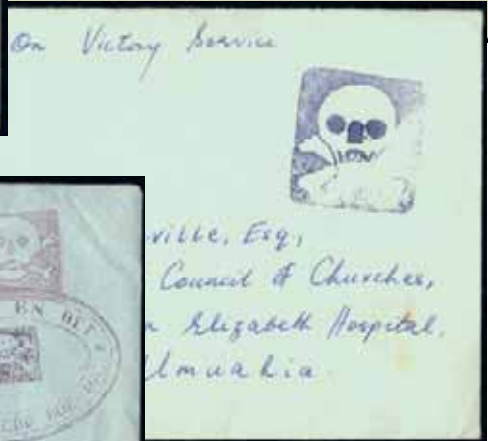 On Victory Service
ville, Esq,
Council of Churches,
n Elizabeth Hospital,
Umuahia